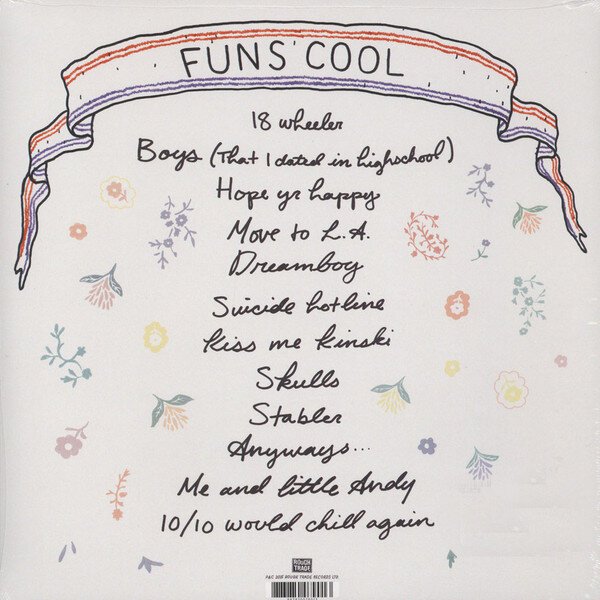 FUNS COOL
18 wheeler
Boys (That I dated in highschool)
Hope yr happy
Move to L.A.
Dreamboy
Suicide hotline
Kiss me Kinski
Skulls
Stabler
Anyways...
Me and little Andy
10/10 would chill again
ROUGH
TRADE
P&C 2015 ROUGH TRADE RECORDS LTD